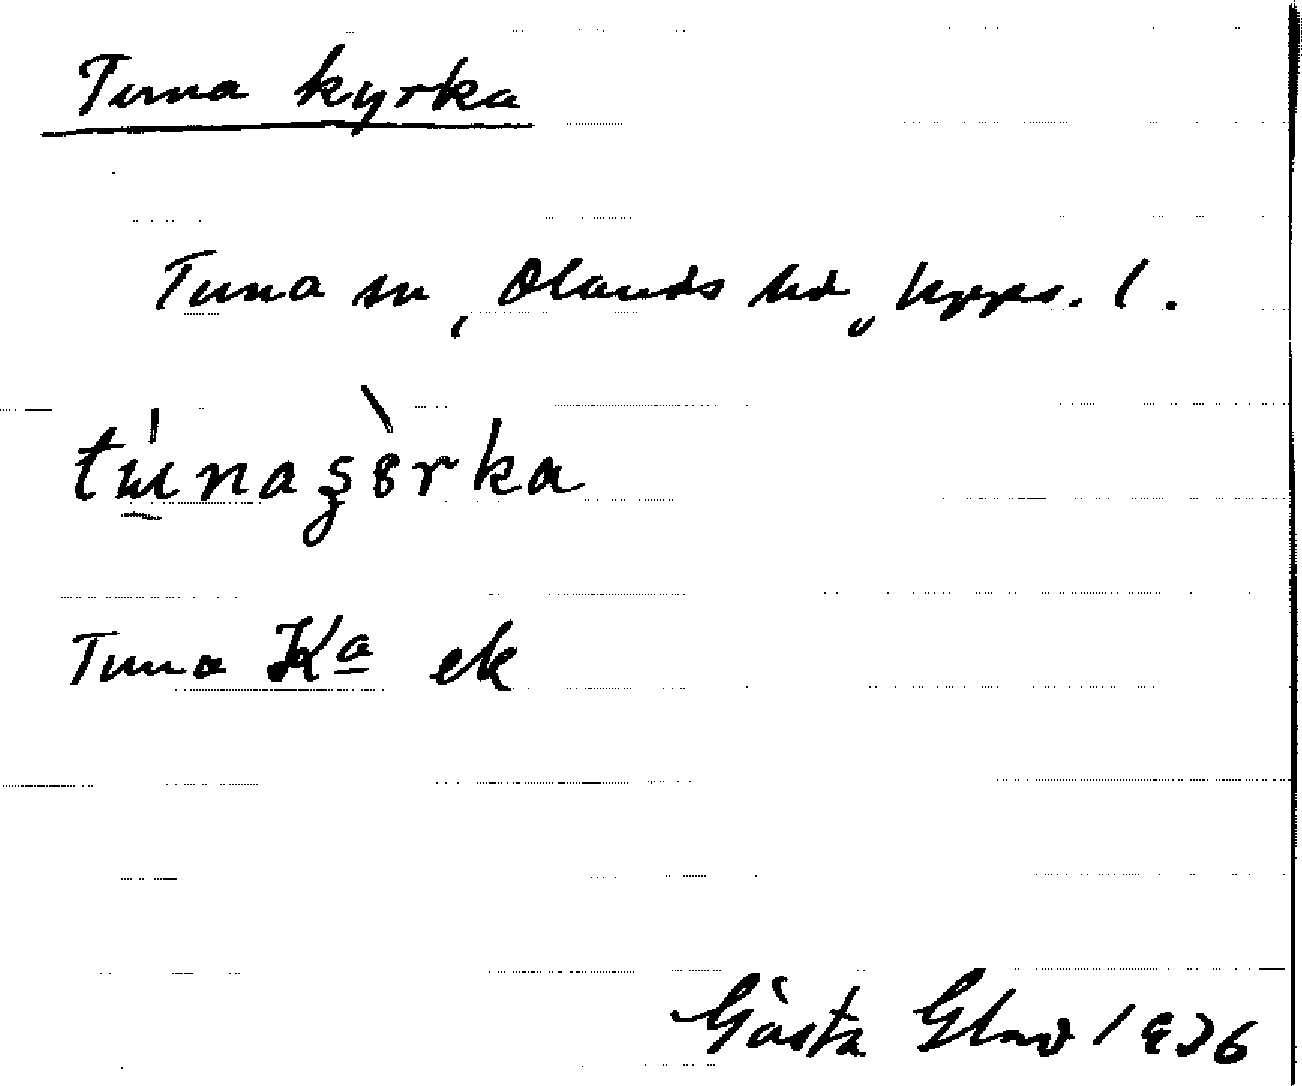 Tuna kyrka
Tuna sn, Olands hd, Upps. l.
tú̱naʂɞ̀rka
Tuna Kª ek
Gösta 1936